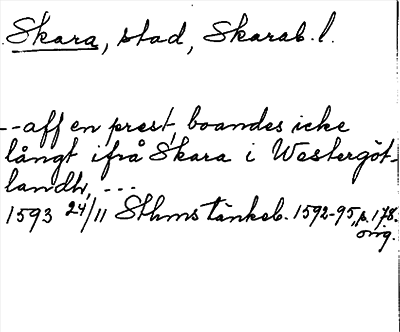 Skara, stad, Skarab. l.
--aff en prest, boandes icke
långt ifrå Skara i Westergöt-
landh, ---
1593 24/11 Sthms tänkeb. 1592-95, p. 178.
orig.